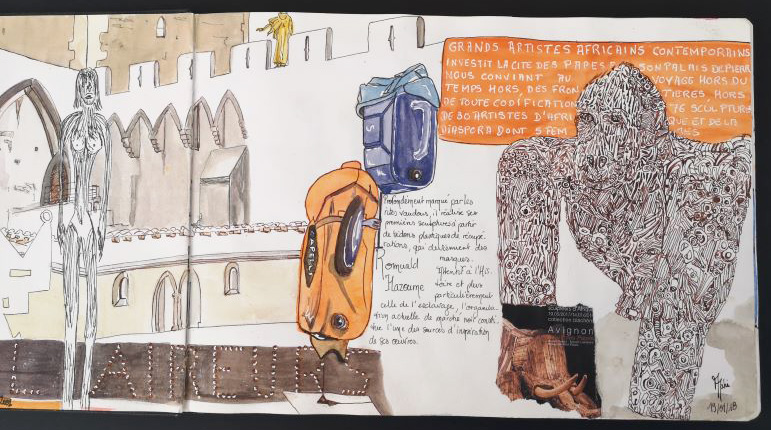 GRANDS ARTISTES AFRICAINS CONTEMPORAINS
INVESTIT LA CITE DES PAPES SON PALAIS DE PIERR
NOUS CONVIANT AU VOYAGE HORS DU
TEMPS HORS DES FRON TIERES, HORS
DE TOUTE CODIFICATION SCULPTURE
DE 30 ARTISTES D'AFRI QUE ET DE LA
DIASPORA DONT 5 FEM
Profondément marqué par les
rites vaudous, il réalise ses
premières sculptures à partir
de bidons plastiques de récupé
rations, qui deviennent des
masques.
Romuald
Hazoume
Attentif à l'His
toire et plus
particulièrement
celle de l'esclavage, l'organisa-
tion actuelle de marché noir consti
tue l'une des sources d'inspiration
de ses œuvres.
Avignon
L'AILLEURS
19/01/18